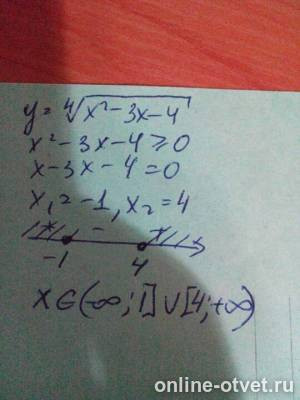 y = ∜(x² - 3x - 4)
x² - 3x - 4 ≥ 0
x - 3x - 4 = 0
x₁ = -1, x₂ = 4
+ - +
-1 4
x ∈ (-∞; 1] ∪ [4; +∞)
online-otvet.ru